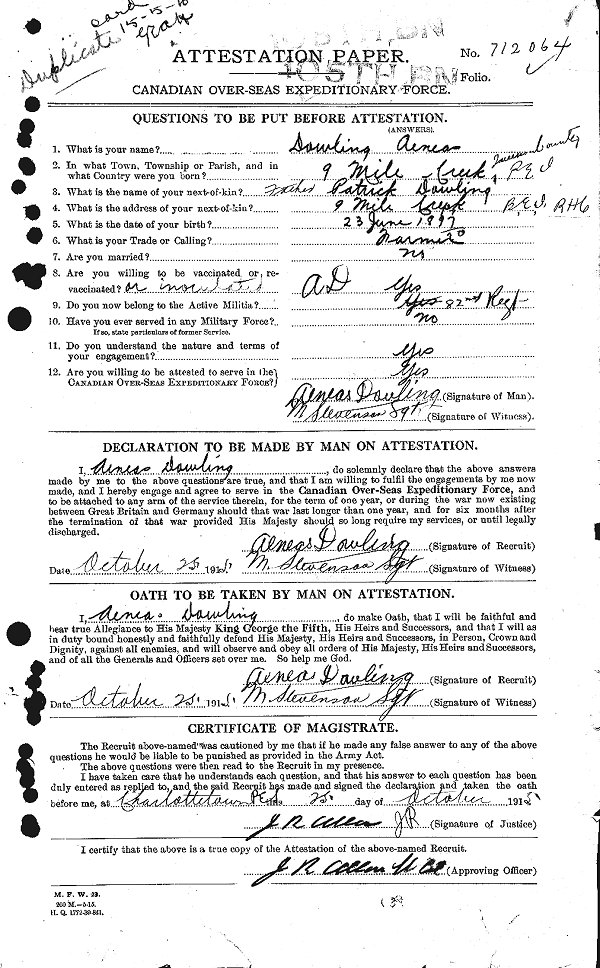 Duplicate card
ATTESTATION PAPER. No. 712064
105TH. BN
Folio.
CANADIAN OVER-SEAS EXPEDITIONARY FORCE.
QUESTIONS TO BE PUT BEFORE ATTESTATION.
(ANSWERS).
1. What is your name? Dowling Aeneas
2. In what Town, Township or Parish, and in what Country were you born? 9 Mile Creek, Queens County P.E.I
3. What is the name of your next-of-kin? Father Patrick Dowling
4. What is the address of your next-of-kin? 9 Mile Creek P.E.I. RH6
5. What is the date of your birth? 23 June 1897
6. What is your Trade or Calling? Farmer
7. Are you married? no
8. Are you willing to be vaccinated or re-
vaccinated? or inoculated AD Yes
9. Do you now belong to the Active Militia? Yes 82nd Regt
10. Have you ever served in any Military Force? no
If so, state particulars of former Service.
11. Do you understand the nature and terms of
your engagement? Yes
12. Are you willing to be attested to serve in the Yes
CANADIAN OVER-SEAS EXPEDITIONARY FORCE?
Aeneas Dowling (Signature of Man).
M Stevenson Sgt. (Signature of Witness).
DECLARATION TO BE MADE BY MAN ON ATTESTATION.
I, Aeneas Dowling, do solemnly declare that the above answers
made by me to the above questions are true, and that I am willing to fulfil the engagements by me now
made, and I hereby engage and agree to serve in the Canadian Over-Seas Expeditionary Force, and
to be attached to any arm of the service therein, for the term of one year, or during the war now existing
between Great Britain and Germany should that war last longer than one year, and for six months after
the termination of that war provided His Majesty should so long require my services, or until legally
discharged.
Aeneas Dowling (Signature of Recruit)
Date October 25 1915. M. Stevenson Sgt (Signature of Witness)
OATH TO BE TAKEN BY MAN ON ATTESTATION.
I, Aeneas Dowling, do make Oath, that I will be faithful and
bear true Allegiance to His Majesty King George the Fifth, His Heirs and Successors, and that I will as
in duty bound honestly and faithfully defend His Majesty, His Heirs and Successors, in Person, Crown and
Dignity, against all enemies, and will observe and obey all orders of His Majesty, His Heirs and Successors,
and of all the Generals and Officers set over me. So help me God.
Aeneas Dowling (Signature of Recruit)
Date October 25. 1915. M. Stevenson Sgt (Signature of Witness)
CERTIFICATE OF MAGISTRATE.
The Recruit above-named was cautioned by me that if he made any false answer to any of the above
questions he would be liable to be punished as provided in the Army Act.
The above questions were then read to the Recruit in my presence.
I have taken care that he understands each question, and that his answer to each question has been
duly entered as replied to, and the said Recruit has made and signed the declaration and taken the oath
before me, at Charlottetown PEI this 25. day of October 1915
J R (Signature of Justice)
I certify that the above is a true copy of the Attestation of the above-named Recruit.
J R (Approving Officer)
M. F. W. 23.
200 M.-5-15.
H. Q. 1772-39-841.